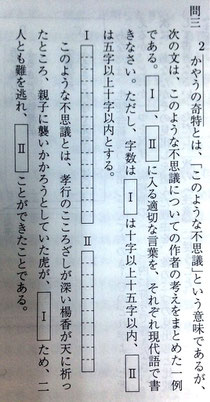 問三 2 かやうの奇特とは、「このような不思議」という意味であるが、
次の文は、このような不思議についての作者の考えをまとめた一例
である。Ⅰ、Ⅱに入る適切な言葉を、それぞれ現代語で書
きなさい。ただし、字数はⅠは十字以上十五字以内、Ⅱ
は五字以上十字以内とする。
Ⅰ Ⅱ
このような不思議とは、孝行のこころざしが深い楊香が天に祈っ
たところ、親子に襲いかかろうとしていた虎が、Ⅰため、二
人とも難を逃れ、Ⅱことができたことである。